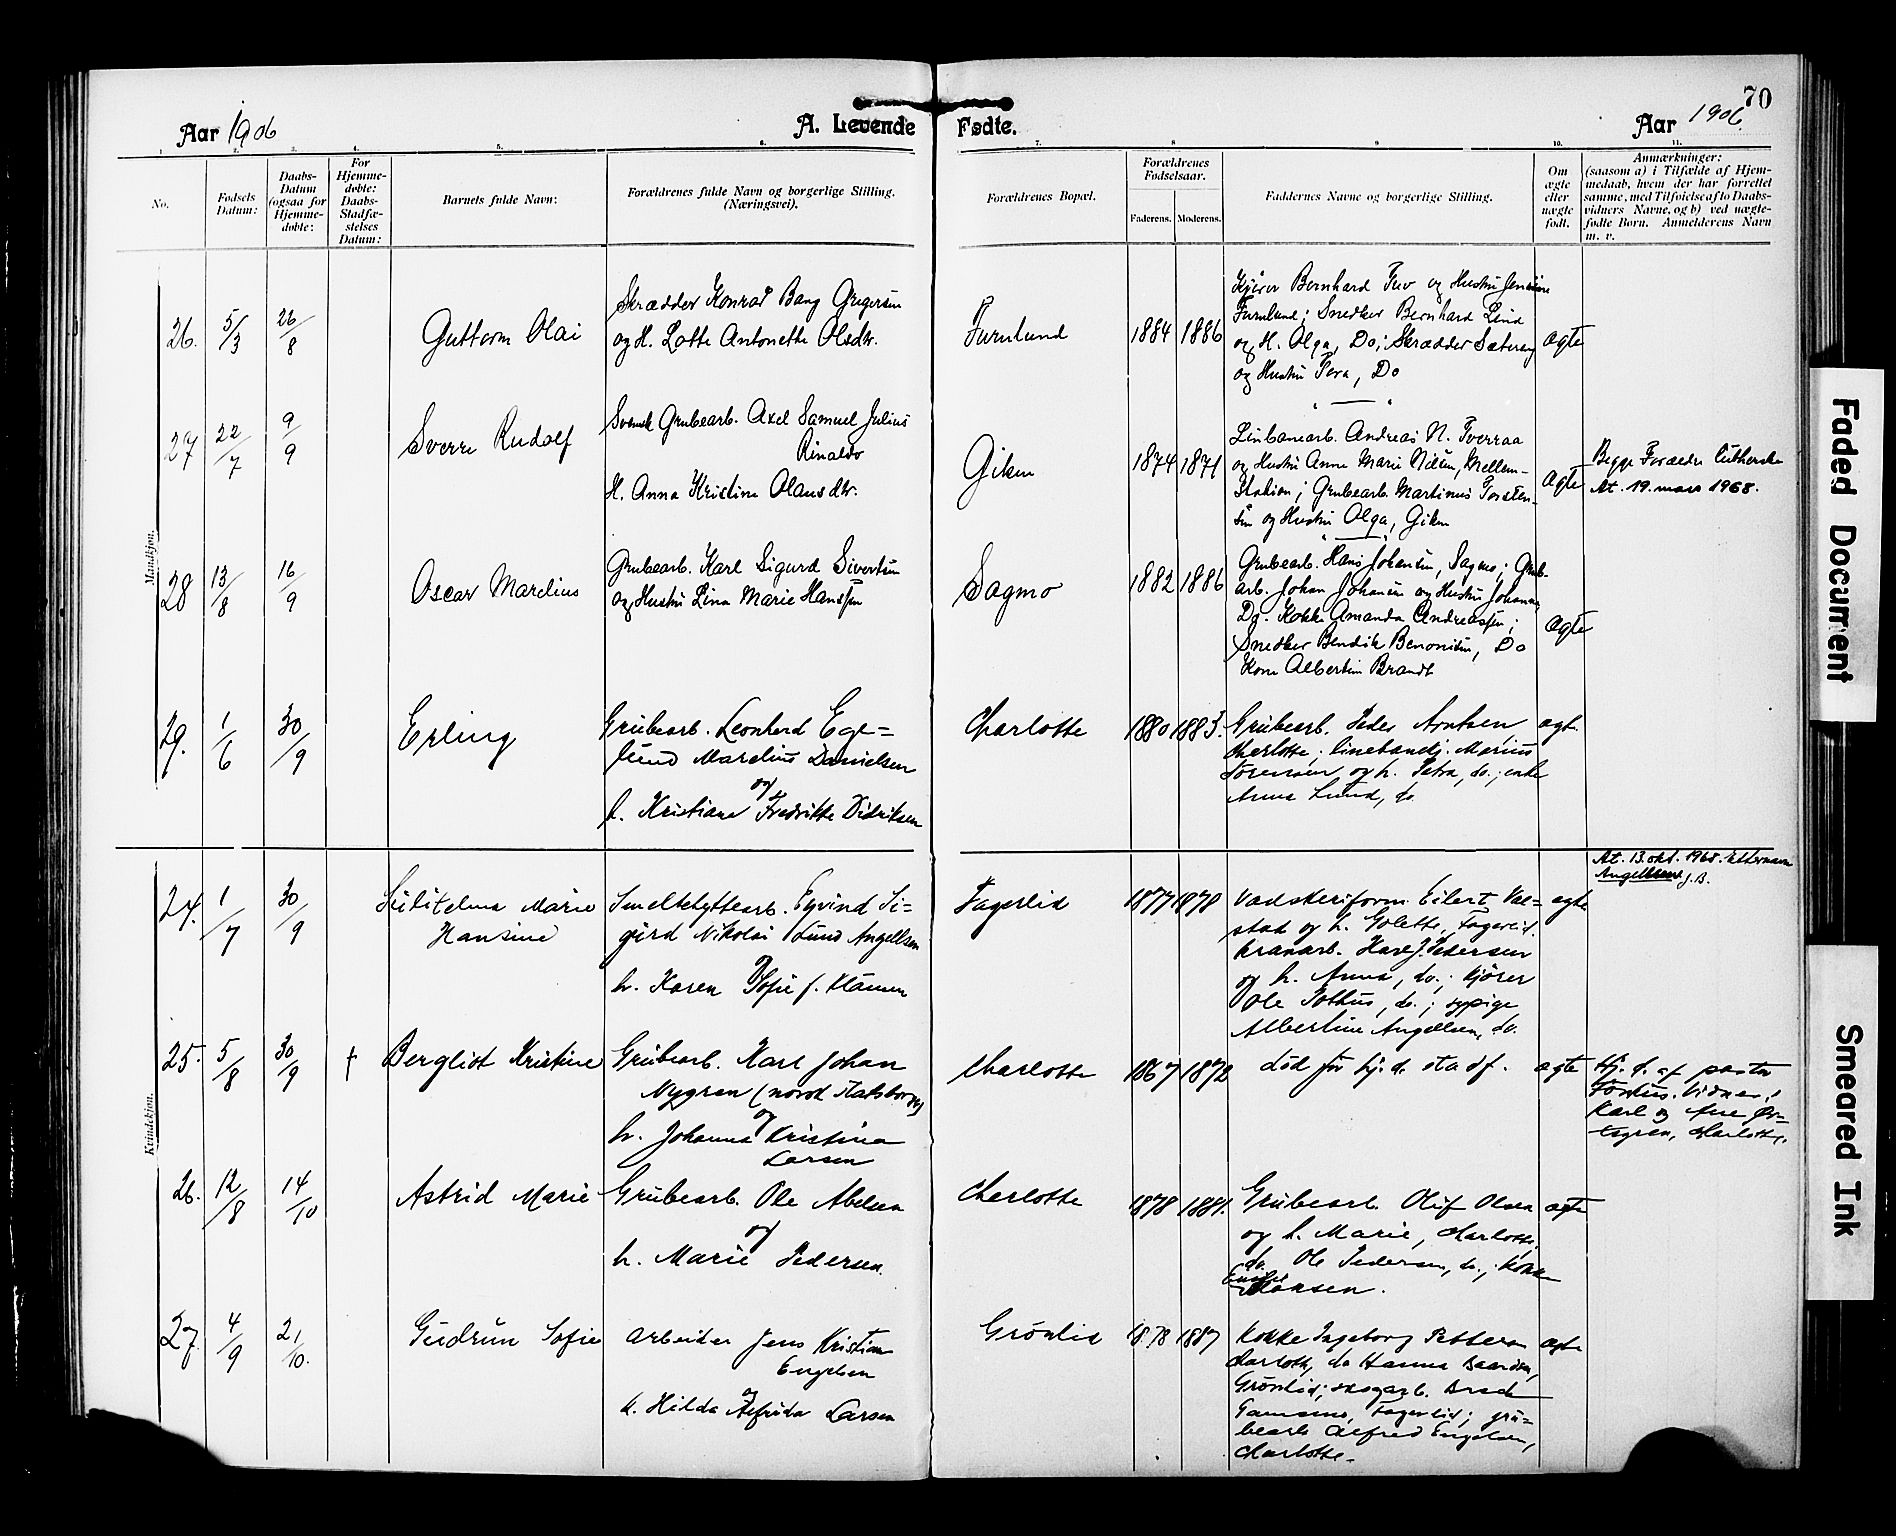 70
Aar 1906
A. Levende Fødte.
Aar 1906.
1. 2. 3. 4. 5. 6. 7. 8 9 10. 11.
No.
Fødsels Datum:
Daabs-Datum (ogsaa for Hjemme-døbte:
For Hjemme-døbte: Daabs-Stadfæ-stelses Datum:
Barnets fulde Navn:
Forældrenes fulde Navn og borgerlige Stilling. (Næringsvei).
Forældrenes Bopæl.
Forældrenes Fødselsaar.
Faderens. Moderens.
Faddernes Navne og borgerlige Stilling.
Om ægte eller uægte født.
Anmærkninger:
(saasom a) i Tilfælde af Hjem-
medaab, hvem der har forrettet
samme, med Tilføielse af to Daabs-
vidners Navne, og b) ved uægte-
fødte Børn. Anmelderens Navn
m. v.
Mandkjøn.
26. 5/3 26/8 Guttorm Olai
Skrædder Konrad Bang Gregersen
og H. Lotte Antonette Olsdtr.
Furulund 1884 1886
Kjører Bernhard Tuv og Hustru
Furulund; Snedker Bernhard Lind
og H. Olga, Do; Skrædder Sætereng
og Hustru Tora, Do
ægte
27 22/7 9/9 Sverre Rudolf
Svensk Grubearb. Axel Samuel Julius
Rinaldo
H. Anna Kristine Olausdtr.
Giken 1874 1871
Linbanearb. Andreas N. Tverraa
og Hustru Anna Marie Nilsen, Mellem-
Station; Grubearb. Martinus Torsten-
sen og Hustru Olga, Giken
ægte
Begge Forældre Lutherske
At. 19. mars 1968.
28 13/8 16/9 Oscar Marelius
Grubearb. Karl Sigurd Sivertsen
og Hustru Lina Marie Hanssen
Sagmo 1882 1886
Grubearb. Hans Johansen, Sagmo; Grub-
arb. Johan Johansen og Hustru Johanna,
Do. Kokke Amanda Andreassen;
Snedker Bendik Benonisen, Do
Kone Albertine Brandt
ægte
29. 1/6 30/9 Erling
Grubearb. Leonhard Ege=
lund Marelius Danielsen
og
h. Kristiane Fredrikke Didriksen
Charlotte 1880 1883.
Grubearb. Peder Arntsen
Charlotte; linebanearb. Marius
Sørensen og h. Petra, do.; enke
Anna Lund, do.
ægte
Kvindekjøn.
24. 1/7 30/9 Sulitelma Marie
Hansine
Smeltehyttearb. Eyvind Si=
gurd Nikolai Lund Angellsen
og
h. Karen Sofie f. Klausen
Fagerlid 1877 1878
Vadskeriform. Eilert Val=
stad og h. Golette, Fagerlid.
kranarb. Karl J. Pedersen
og h. Anna, do.; kjører
Ole Sothus, do.; sypige
Albertine Angellsen, do.
ægte
At. 13. okt. 1968. Etternavn
Angellsen J.B.
25. 5/8 30/9 † Bergliot Kristine
Grubearb. Karl Johan
Nygren (norsk statsborger)
og
h. Johanna Kristina
Larsen
Charlotte 1867 1872
død før hj.d. stadf.
ægte
Hj. d. af pastor
Karl og
Charlotte.
26. 12/8 14/10 Astrid Marie
Grubearb. Ole Abelsen
og
h. Marie Pedersen.
Charlotte 1878 1881.
Grubearb. Oluf Olsen
og h. Marie, Charlotte.
do. Ole Pedersen, do.; kokke
Hansen.
ægte
27. 4/9 21/10. Gudrun Sofie
arbeider Jens Kristian
Engelsen
og
h. Hilda Alfrida Larsen
Grønlid 1878 1887
Kokke Ingeborg Pettersen
Charlotte, do Hanna
Grønlid; skogarb.
Fagerlid; gru=
bearb. Alfred Engelsen,
Charlotte.
ægte
Faded Document
Smeared Ink